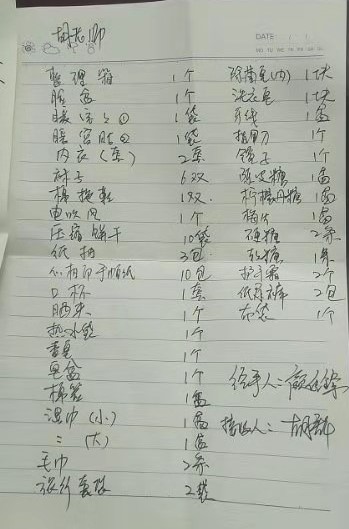 胡老师
DATE
整理箱 1个
脸盆 1个
暖宫贴① 1袋
暖宫贴② 1袋
内衣(套) 2套
袜子 6双
棉拖鞋 1双
电吹风 1个
压缩饼干 10袋
纸抽 2包
心相印手帕纸 10包
口杯 1套
晒架 1个
热水袋 1个
香皂 1个
皂盆 1个
棉签 1盒
湿巾(小) 1盒
〃(大) 1盒
毛巾 2条
旅行套装 2袋
除菌皂(内) 1块
洗衣皂 1块
牙线 1盒
指甲刀 1个
镜子 1个
陈皮糖 1盒
柠檬丹糖 1盒
1盒
硬糖 2条
软糖 1条
护手霜 2个
纸尿裤 2包
衣袋 1个
经手人:
接收人:胡